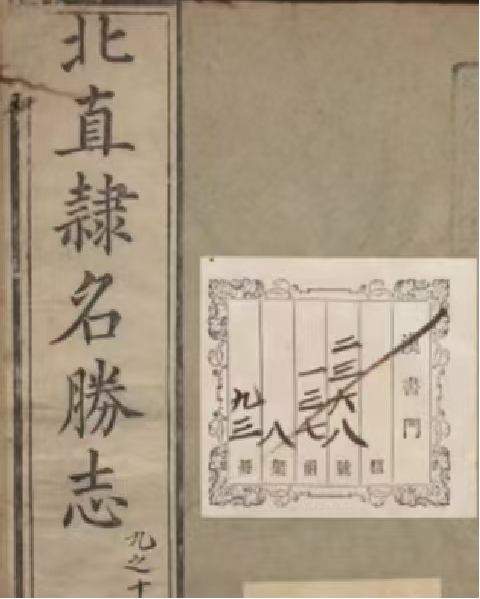 北直隷名勝志
九之十
漢書門
類
二三六八號
一三七函
八架
九三冊